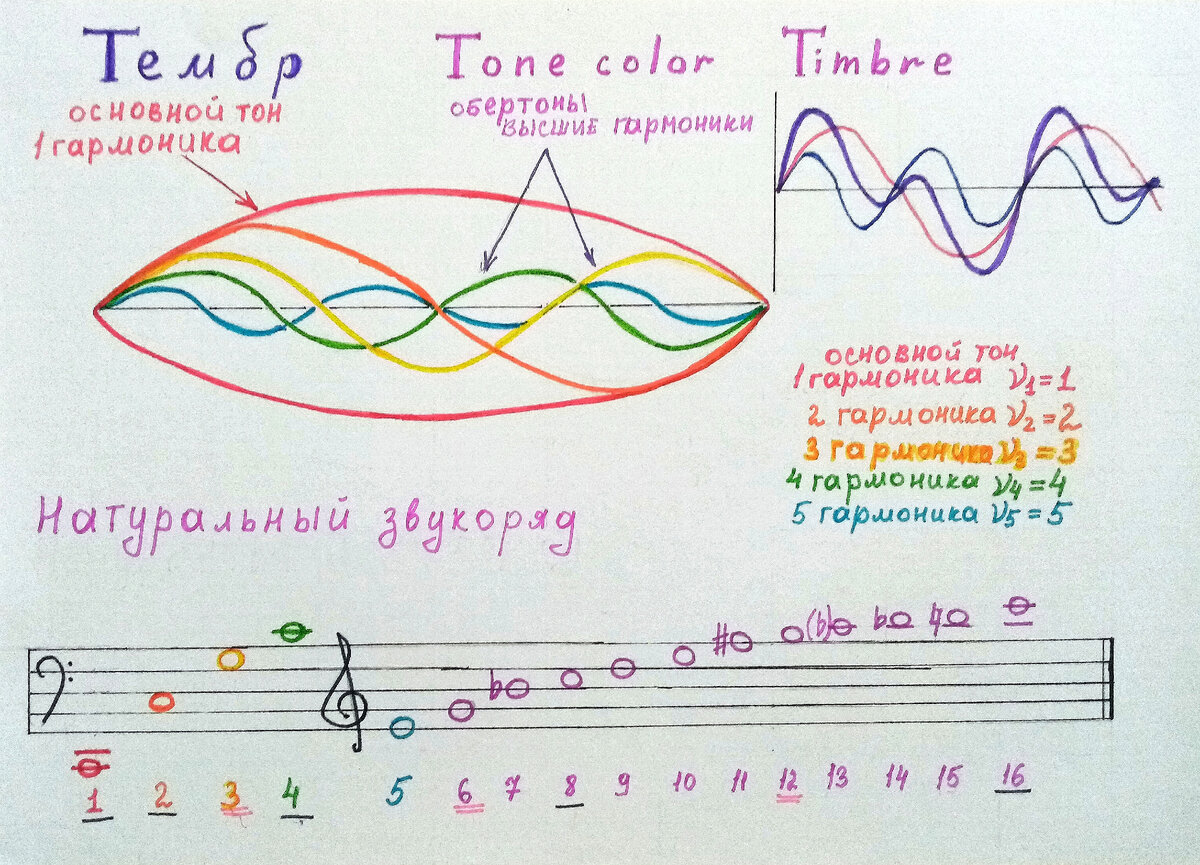 Тембр Tone color Timbre
основной тон
1 гармоника
обертоны
высшие гармоники
основной тон
1 гармоника ν₁=1
2 гармоника ν₂=2
3 гармоника ν₃=3
4 гармоника ν₄=4
5 гармоника ν₅=5
Натуральный звукоряд
1 2 3 4 5 6 7 8 9 10 11 12 13 14 15 16